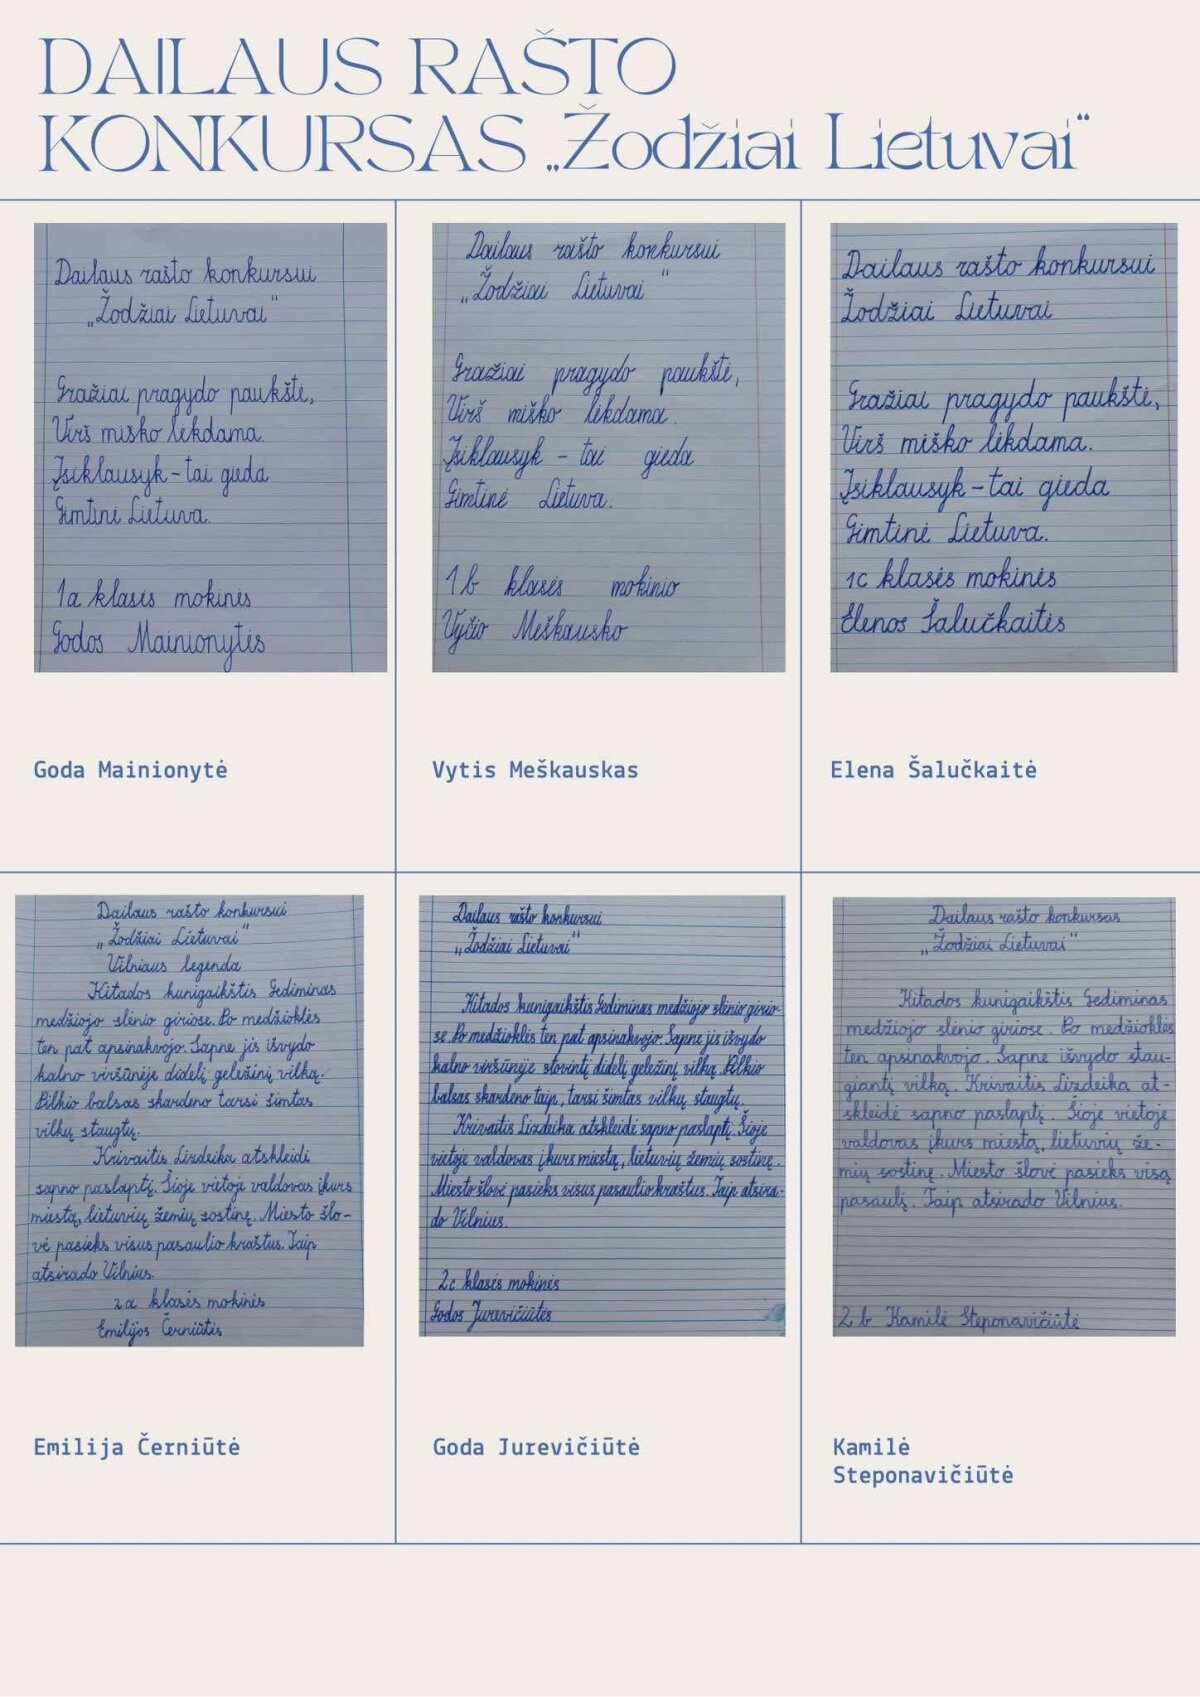 DAILAUS RAŠTO
KONKURSAS „Žodžiai Lietuvai“
Dailaus rašto konkursui
„Žodžiai Lietuvai“
Gražiai pragydo paukštė,
Virš miško lėkdama.
Įsiklausyk - tai gieda
Gimtinė Lietuva.
1a klasės mokinės
Godos Mainionytės
Goda Mainionytė
Dailaus rašto konkursui
„Žodžiai Lietuvai“
Gražiai pragydo paukštė,
Virš miško lėkdama.
Įsiklausyk - tai gieda
Gimtinė Lietuva.
1b klasės mokinio
Vyčio Meškausko
Vytis Meškauskas
Dailaus rašto konkursui
Žodžiai Lietuvai
Gražiai pragydo paukštė,
Virš miško lėkdama.
Įsiklausyk - tai gieda
Gimtinė Lietuva.
1c klasės mokinės
Elenos Šalučkaitės
Elena Šalučkaitė
Dailaus rašto konkursui
„Žodžiai Lietuvai“
Vilniaus legenda
Kitados kunigaikštis Gediminas
medžiojo slėnio giriose. Po medžioklės
ten pat apsinakvojo. Sapne jis išvydo
kalno viršūnėje didelį geležinį vilką.
Pilkio balsas skardeno tarsi šimtas
vilkų staugtų.
Krivaitis Lizdeika atskleidė
sapno paslaptį. Šioje vietoje valdovas įkurs
miestą, lietuvių žemių sostinę. Miesto šlo-
vė pasieks visus pasaulio kraštus. Taip
atsirado Vilnius.
2a klasės mokinės
Emilijos Černiūtės
Emilija Černiūtė
Dailaus rašto konkursui
„Žodžiai Lietuvai“
Kitados kunigaikštis Gediminas medžiojo slėnio girio-
se. Po medžioklės ten pat apsinakvojo. Sapne jis išvydo
kalno viršūnėje stovintį didelį geležinį vilką. Pilkio
balsas skardeno taip, tarsi šimtas vilkų staugtų.
Krivaitis Lizdeika atskleidė sapno paslaptį. Šioje
vietoje valdovas įkurs miestą, lietuvių žemių sostinę.
Miesto šlovė pasieks visus pasaulio kraštus. Taip atsira-
do Vilnius.
2c klasės mokinės
Godos Jurevičiūtės
Goda Jurevičiūtė
Dailaus rašto konkursas
„Žodžiai Lietuvai“
Kitados kunigaikštis Gediminas
medžiojo slėnio giriose. Po medžioklės
ten apsinakvojo. Sapne išvydo stau-
giantį vilką. Krivaitis Lizdeika at-
skleidė sapno paslaptį. Šioje vietoje
valdovas įkurs miestą, lietuvių že-
mių sostinę. Miesto šlovė pasieks visą
pasaulį. Taip atsirado Vilnius.
2 b Kamilė Steponavičiūtė
Kamilė
Steponavičiūtė